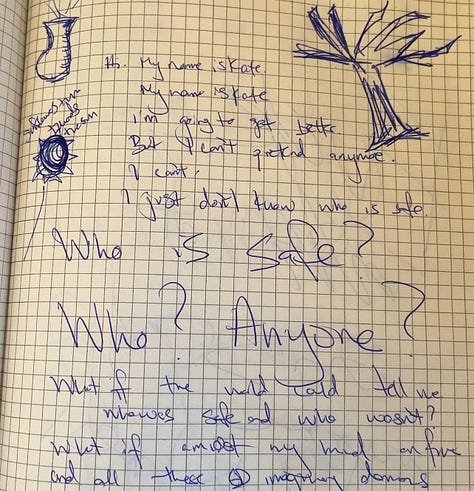 Hi. My name is Kate.
My name is Kate
I'm going to get better.
But I can't pretend anymore.
I can't.
I just don't know who is safe.
Who is Safe?
Who? Anyone?
What if the world could tell me
who was safe and who wasn't?
What if almost my mind on fire
and all these imaginary demons